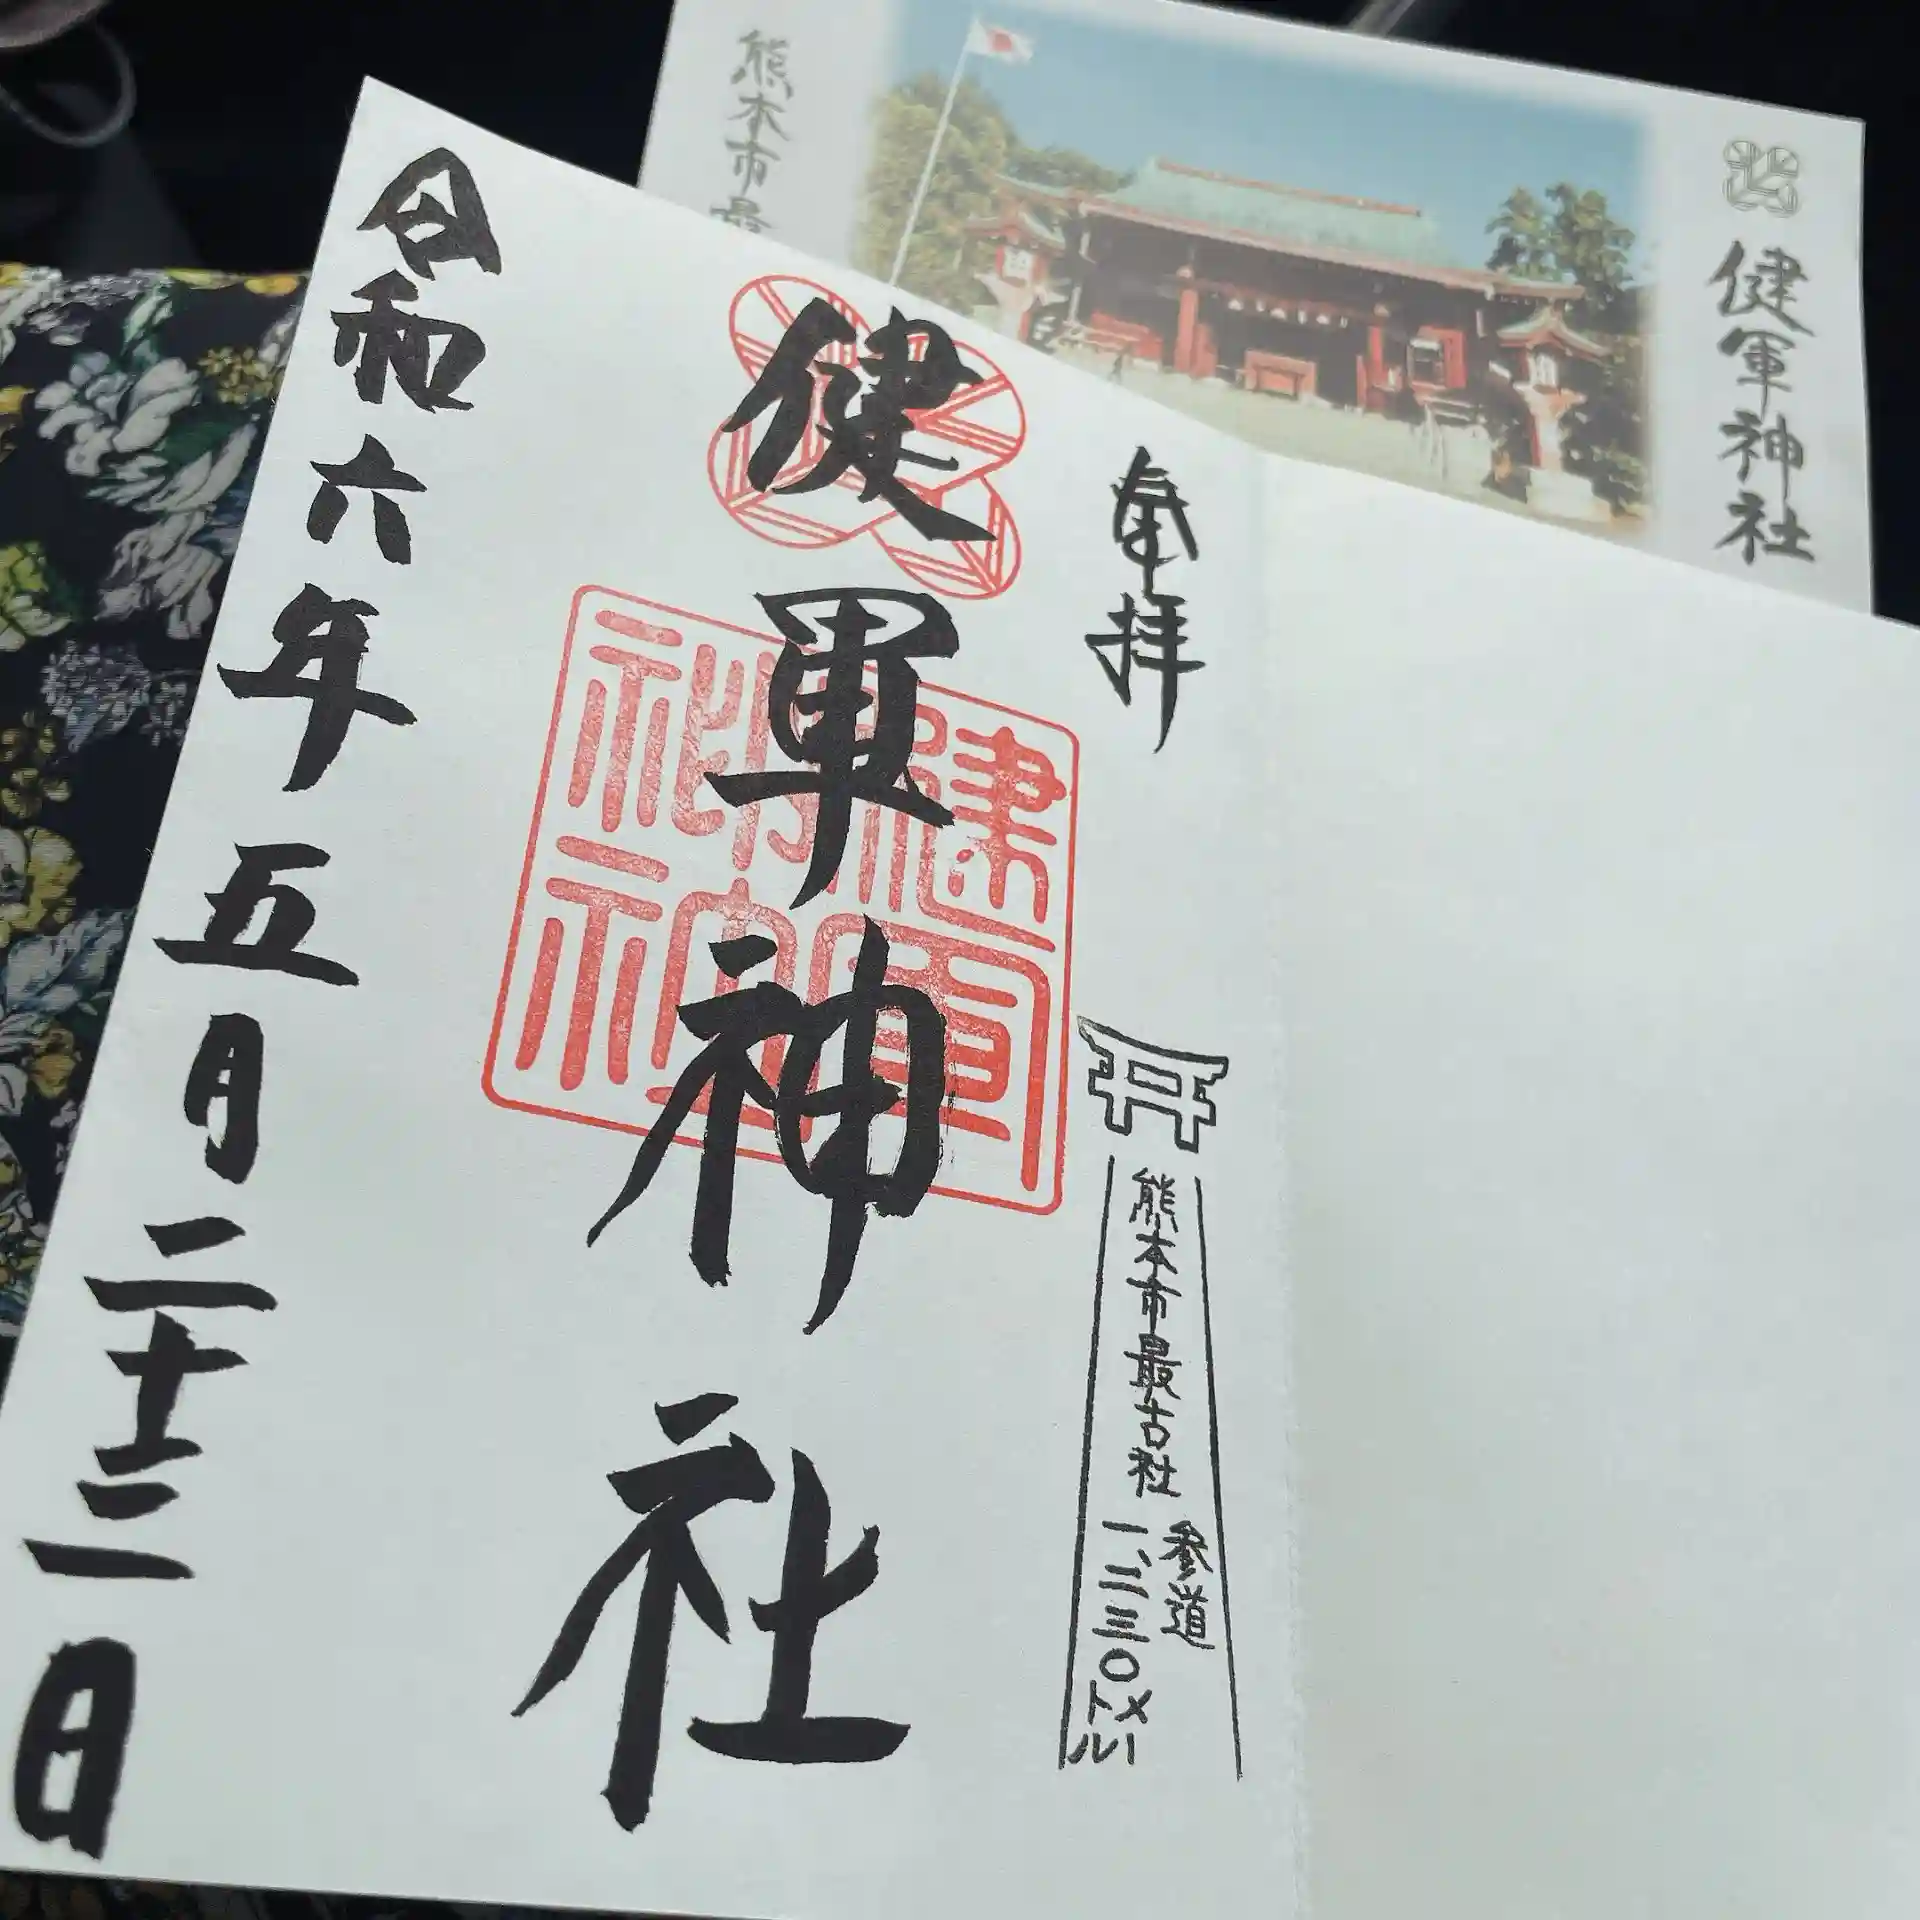 健軍神社
熊本市最
奉拝
熊本市最古社
参道
一、二三〇メートル
健軍神社
健軍
神社
令和六年五月二十二日